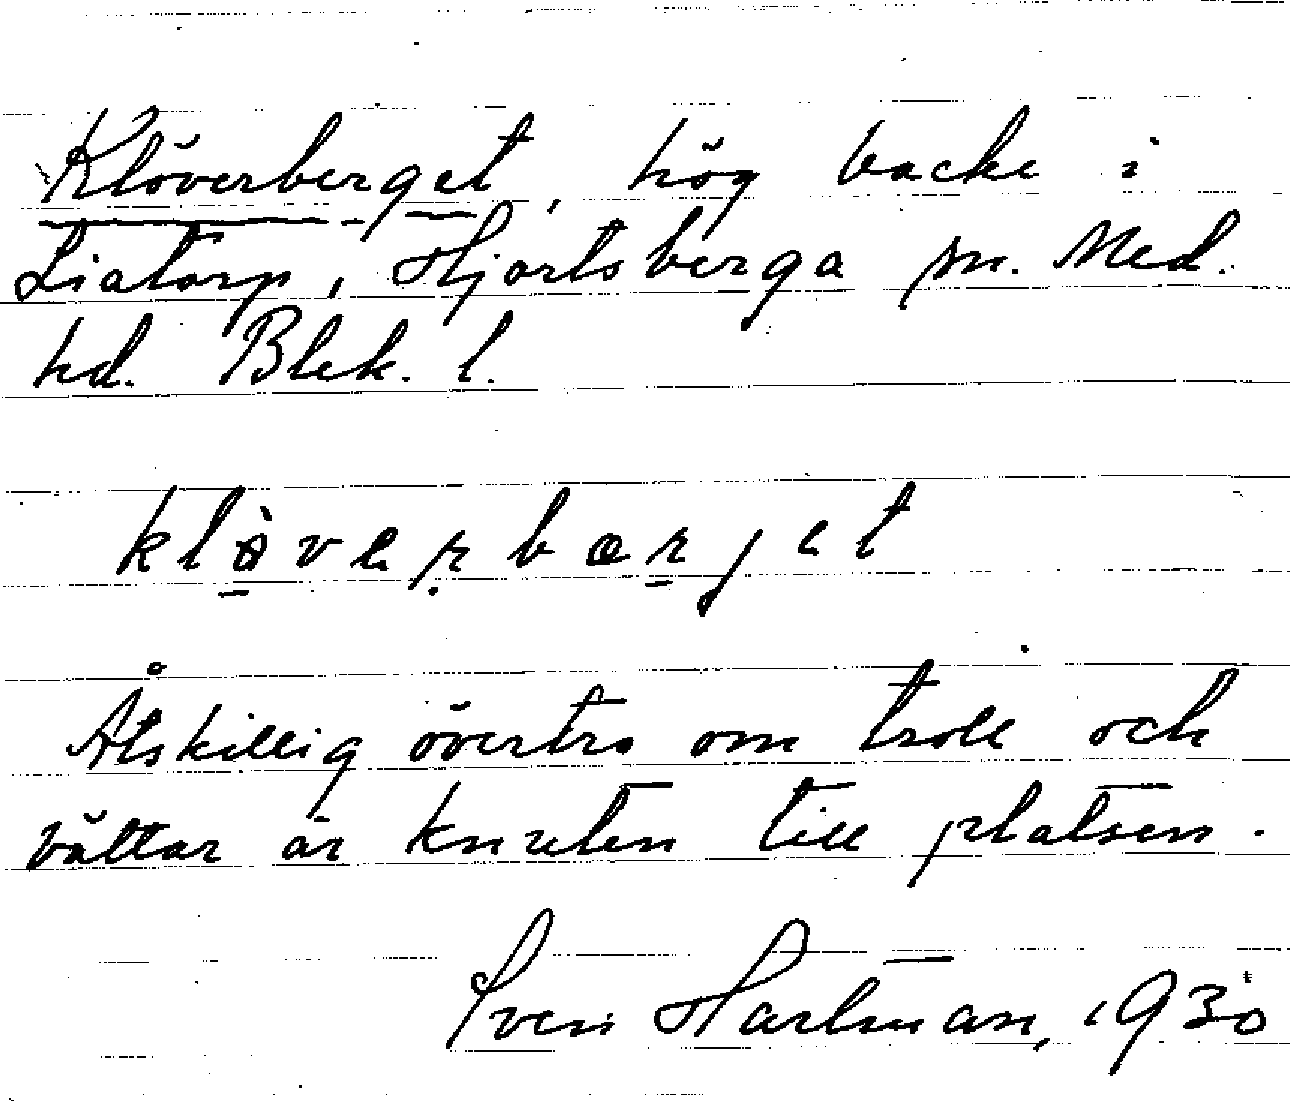 Klöverberget, hög backe i
Liatorp, Hjortsberga sn. Med.
hd. Blek. l.
klø̀verbærjet
Åtskillig övertro om troll och
vättar är knuten till platsen.
Sven Hartman, 1930